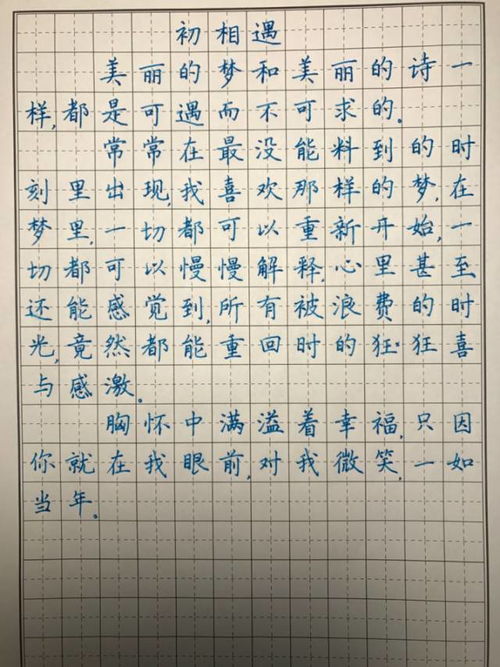 初相遇
美丽的梦和美丽的诗一
样,都是可遇而不可求的。
常常在最没能料到的时
刻里出现,我喜欢那样的梦,在
梦里,一切都可以重新开始,一
切都可以慢慢解释,心里甚至
还能感觉到,所有被浪费的时
光,竟然都能重回时的狂狂喜
与感激。
胸怀中满溢着幸福,只因
你就在我眼前,对我微笑,一如
当年。